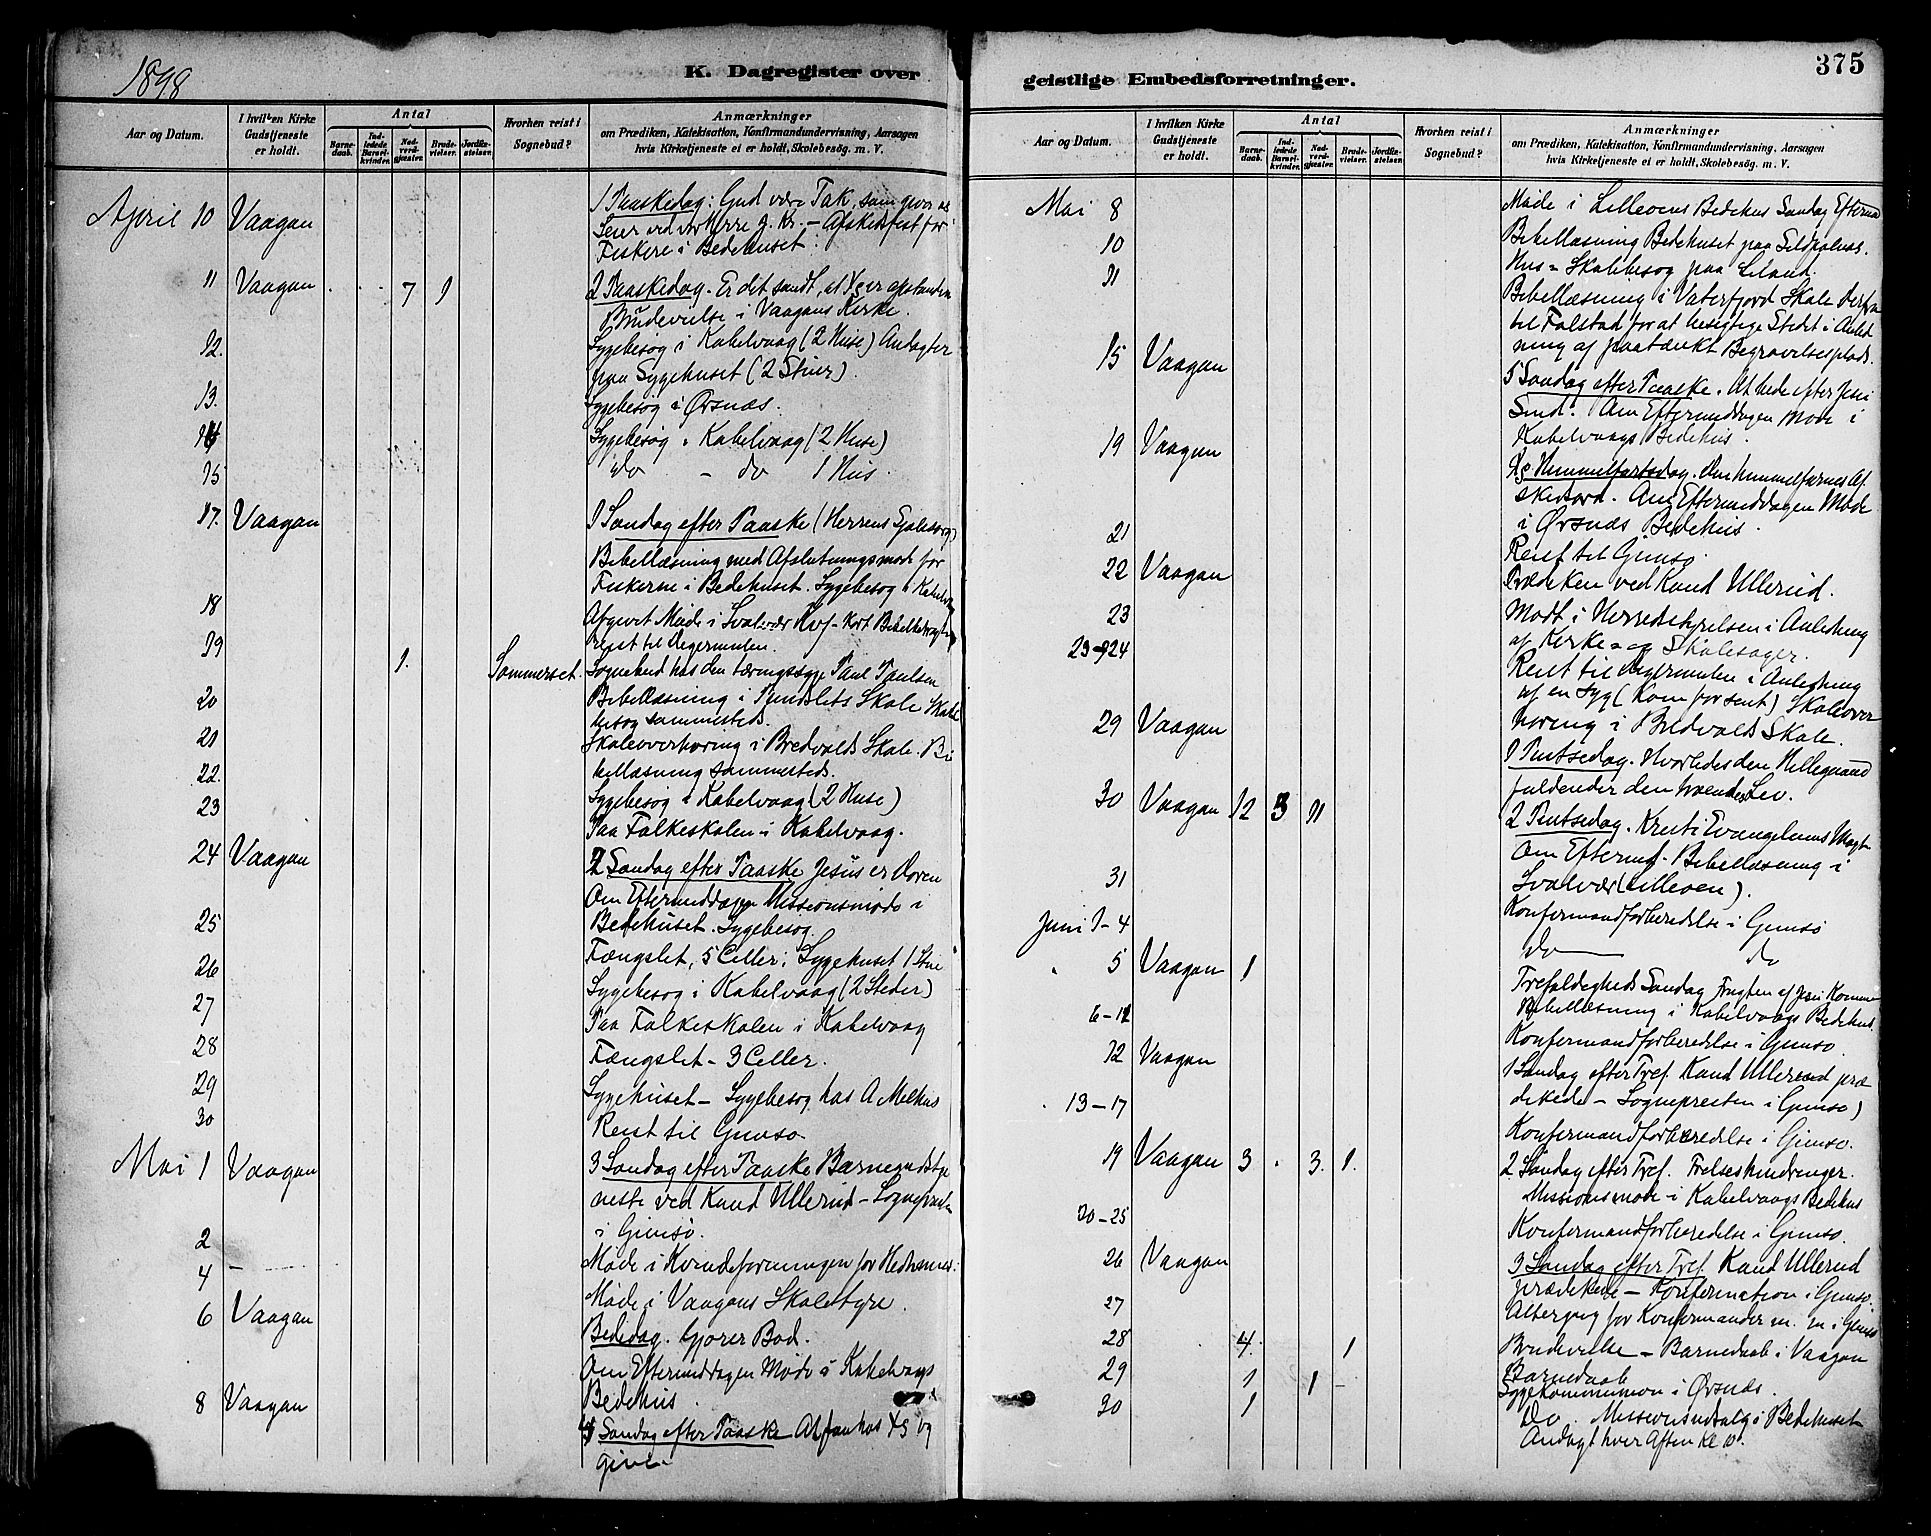 1898
K. Dagregister over
Aar og Datum.
I hvilken Kirke Gudstjeneste er holdt.
Antal
Barnedaab.
Indledede Barselkvinder.
Nadverdgjæster.
Brudevielser.
Jordfæstelser.
Hvorhen reist i Sognebud?
Anmærkninger
om Prædiken, Katekisation, Konfirmandundervisning, Aarsagen
hvis Kirketjeneste ei er holdt, Skolebesög. m. V.
April 10 Vaagan 1 Paaskedag: Gud være Tak, som giver os
Seier ved vor Herre J. Kr. – Afskedsfest for
Fiskere i Bedehuset.
11 Vaagan 7 1 2 Paaskedag. Er det sandt, at Xs er opstanden
Brudevielse i Vaagans Kirke.
12. Sygebesøg i Kabelvaag (2 Huse) Andagter
paa Sygehuset (2 Stuer).
13. Sygebesøg i Ørsnæs.
14 Sygebesøg i Kabelvaag (2 Huse)
15 do – do 1 Hus.
17. Vaagan 1 Søndag efter Paaske (Herrens Sjælesorg)
Bibellæsning med Afslutningsmøde for
Fiskerne i Bedehuset. Sygebesøg i Kabelvaag
18 Møde i Svolvær
reist til Digermulen.
19 1. Sommerset. Sognebud hos den tæringssyge Paul Paulsen
20 Bibellæsning i Skole Skole
besøg sammesteds.
21 Skoleoverhøring i Bredvolds Skole. Bi
bellæsning sammesteds.
22. Sygebesøg i Kabelvaag (2 Huse)
23 Paa Folkeskolen i Kabelvaag.
24 Vaagan 2 Søndag efter Paaske Jesus er Døren
Om Eftermiddagen Missionsmøde i
Bedehuset. Sygebesøg.
25 Fængslet, 5 Celler; Sygehuset 1 Stue
26 Sygebesøg i Kabelvaag (2 Steder)
27 Paa Folkeskolen i Kabelvaag
28 Fængslet – 3 Celler.
29 Sygehuset – Sygebesøg hos A Melhus
30 Reist til Gimsø.
Mai 1 Vaagan 3 Søndag efter Paaske Barnegudstje
neste ved Kand Ullerud – Sognepresten
i Gimsø.
2 Møde i Kvindeforeningen for Hedn
4 – Møde i Vaagans Skolestyre.
6 Vaagan Bededag. Gjører Bod.
Om Eftermiddagen Møde i Kabelvaags
Bedehus.
8 Vaagan 4 Søndag efter Paaske At faa hos Xs og
give.
375
geistlige Embedsforretninger.
Aar og Datum.
I hvilken Kirke Gudstjeneste er holdt.
Antal
Barnedaab.
Indledede Barselkvinder.
Nadverdgjæster.
Brudevielser.
Jordfæstelser.
Hvorhen reist i Sognebud?
Anmærkninger
om Prædiken, Katekisation, Konfirmandundervisning, Aarsagen
hvis Kirketjeneste ei er holdt, Skolebesög. m. V.
Mai 8 Møde i Lillevens Bedehus Søndag Efterm
10 Bibellæsning Bedehuset paa
Hus = Skolebesøg paa
11 Bibellæsning i Vaterfjord Skole derfra
til Falstad for at besigtige Stedet i Anled
ning af paatænkt Begravelsesplads.
15 Vaagan 5 Søndag efter Paaske. At bede efter Jesu
Sind. Om Eftermiddagen Møde i
Kabelvaags Bedehus.
19 Vaagan Xs Himmelfartsdag. Den himmelfarnes Af
skedsord. Om Eftermiddagen Møde
i Ørsnæs Bedehus.
21 Reist til Gimsø.
22 Vaagan Prædiken ved Kand Ullerud.
23 Mødt i Herredsstyrelsen i Anledning
af Kirke= og Skolesager.
23–24 Reist til Digermulen i Anledning
af en Syg (Kom for sent) Skoleover
høring i Bredvolds Skole.
29 Vaagan 1 Pintsedag. Hvorledes den Helligaand
fuldender den troendes Lev.
30 Vaagan 12 3 11 2 Pintsedag. Krist i Evangeliums Magt
Om Efterm. Bibellæsning i
Svolvær (Lilleven).
31 Konfirmandforberedelse i Gimsø
Juni 1–4 do do
5 Vaagan 1 Trefoldigheds Søndag Frugten af Jesu Komme
Bibellæsning i Kabelvaags Bedehus.
6–11 Konfirmandforberedelse i Gimsø.
12 Vaagan 1 Søndag efter Tref. Kand Ullerud præ
dikede – Sognepresten i Gimsø)
13–17 Konfirmandforberedelse i Gimsø.
19 Vaagan 3 3. 1. 2 Søndag efter Tref. Frelseshindringer.
Missionsmøde i Kabelvaags Bedehus
20–25 Konfirmandforberedelse i Gimsø.
26 Vaagan 3 Søndag efter Tref. Kand Ullerud
prædikede – Konfirmation i Gimsø.
27 Altergang for Konfirmander m. m i Gimsø
28 4. 1 Brudevielse – Barnedaab i Vaagan
29 1 1 – Barnedaab
Sygekommunion i Ørsnæs.
30 1 Do. Missionsudsalg i Bedehuset
Andagt hver Aften Kl 10.